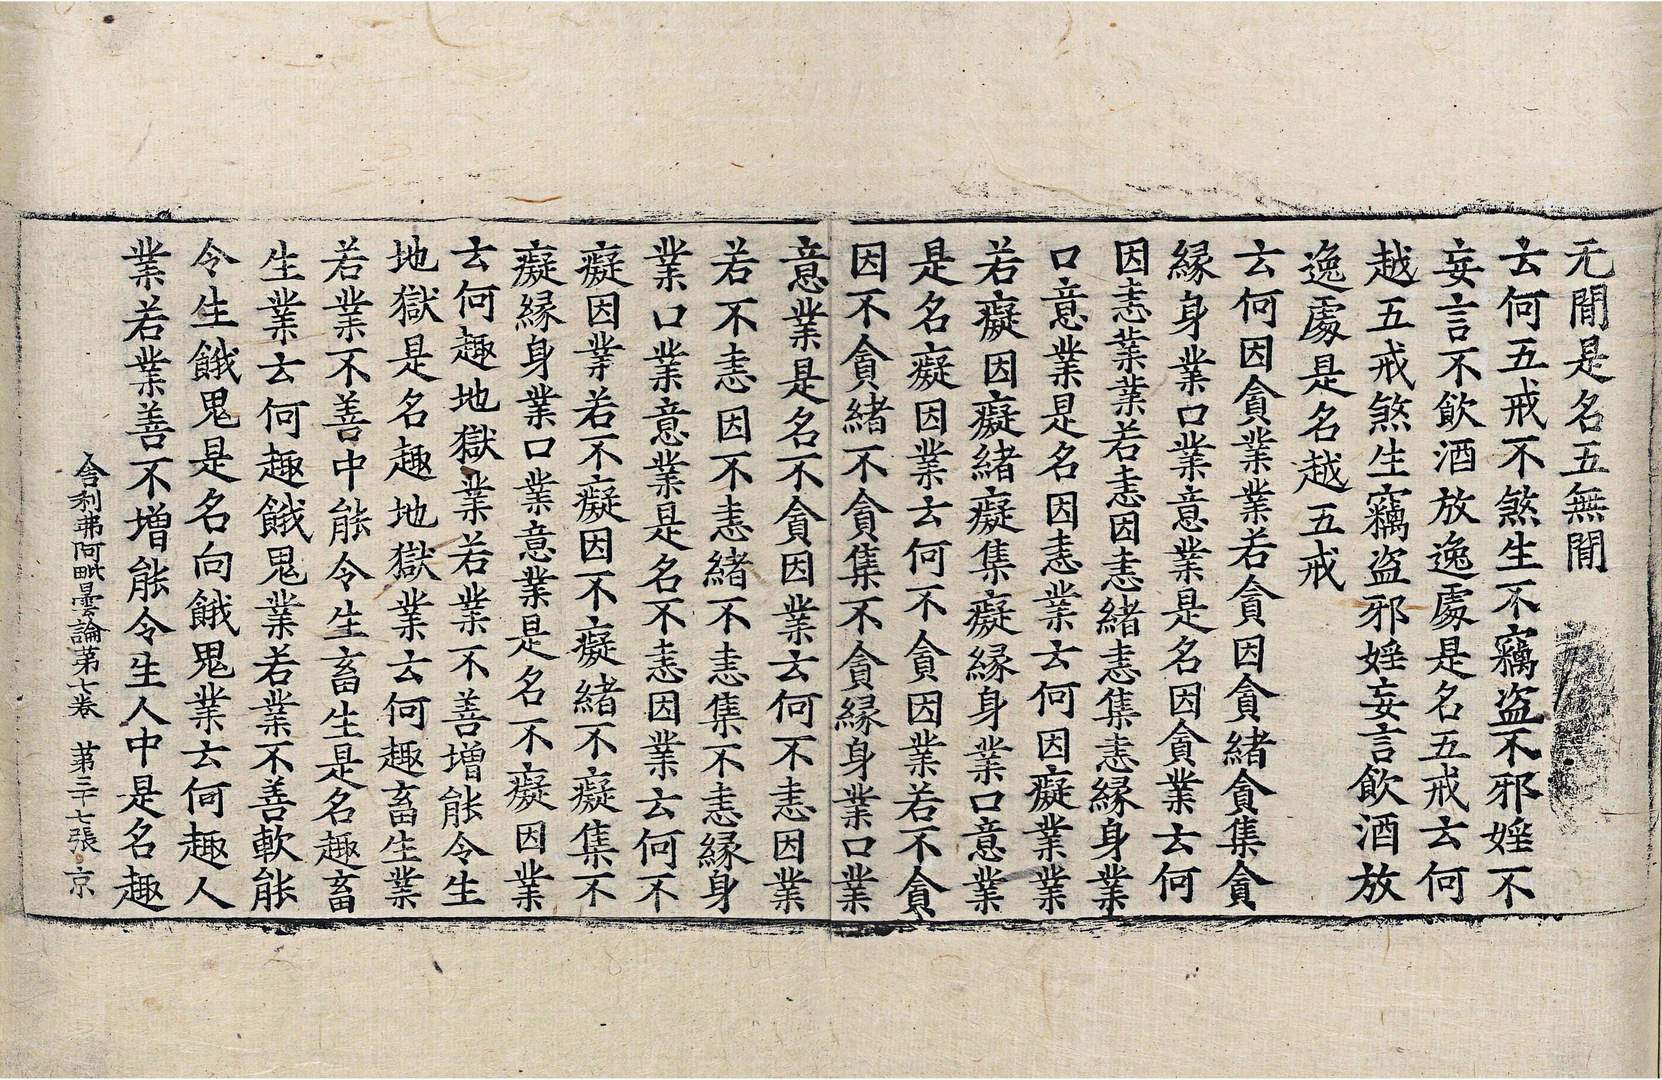 无間是名五無間
云何五戒不煞生不竊盗不邪婬不
妄言不飲酒放逸處是名五戒云何
越五戒煞生竊盗邪婬妄言飲酒放
逸處是名越五戒
云何因貪業業若貪因貪緒貪集貪
縁身業口業意業是名因貪業云何
因恚業業若恚因恚緒恚集恚縁身業
口意業是名因恚業云何因癡業業
若癡因癡緒癡集癡縁身業口意業
是名癡因業云何不貪因業若不貪
因不貪緒不貪集不貪縁身業口業
意業是名不貪因業云何不恚因業
若不恚因不恚緒不恚集不恚縁身
業口業意業是名不恚因業云何不
癡因業若不癡因不癡緒不癡集不
癡縁身業口業意業是名不癡因業
云何趣地獄業若業不善増能令生
地獄是名趣地獄業云何趣畜生業
若業不善中能令生畜生是名趣畜
生業云何趣餓鬼業若業不善軟能
令生餓鬼是名向餓鬼業云何趣人
業若業善不増能令生人中是名趣
舎利弗阿毗曇論第七卷 第三十七張 京